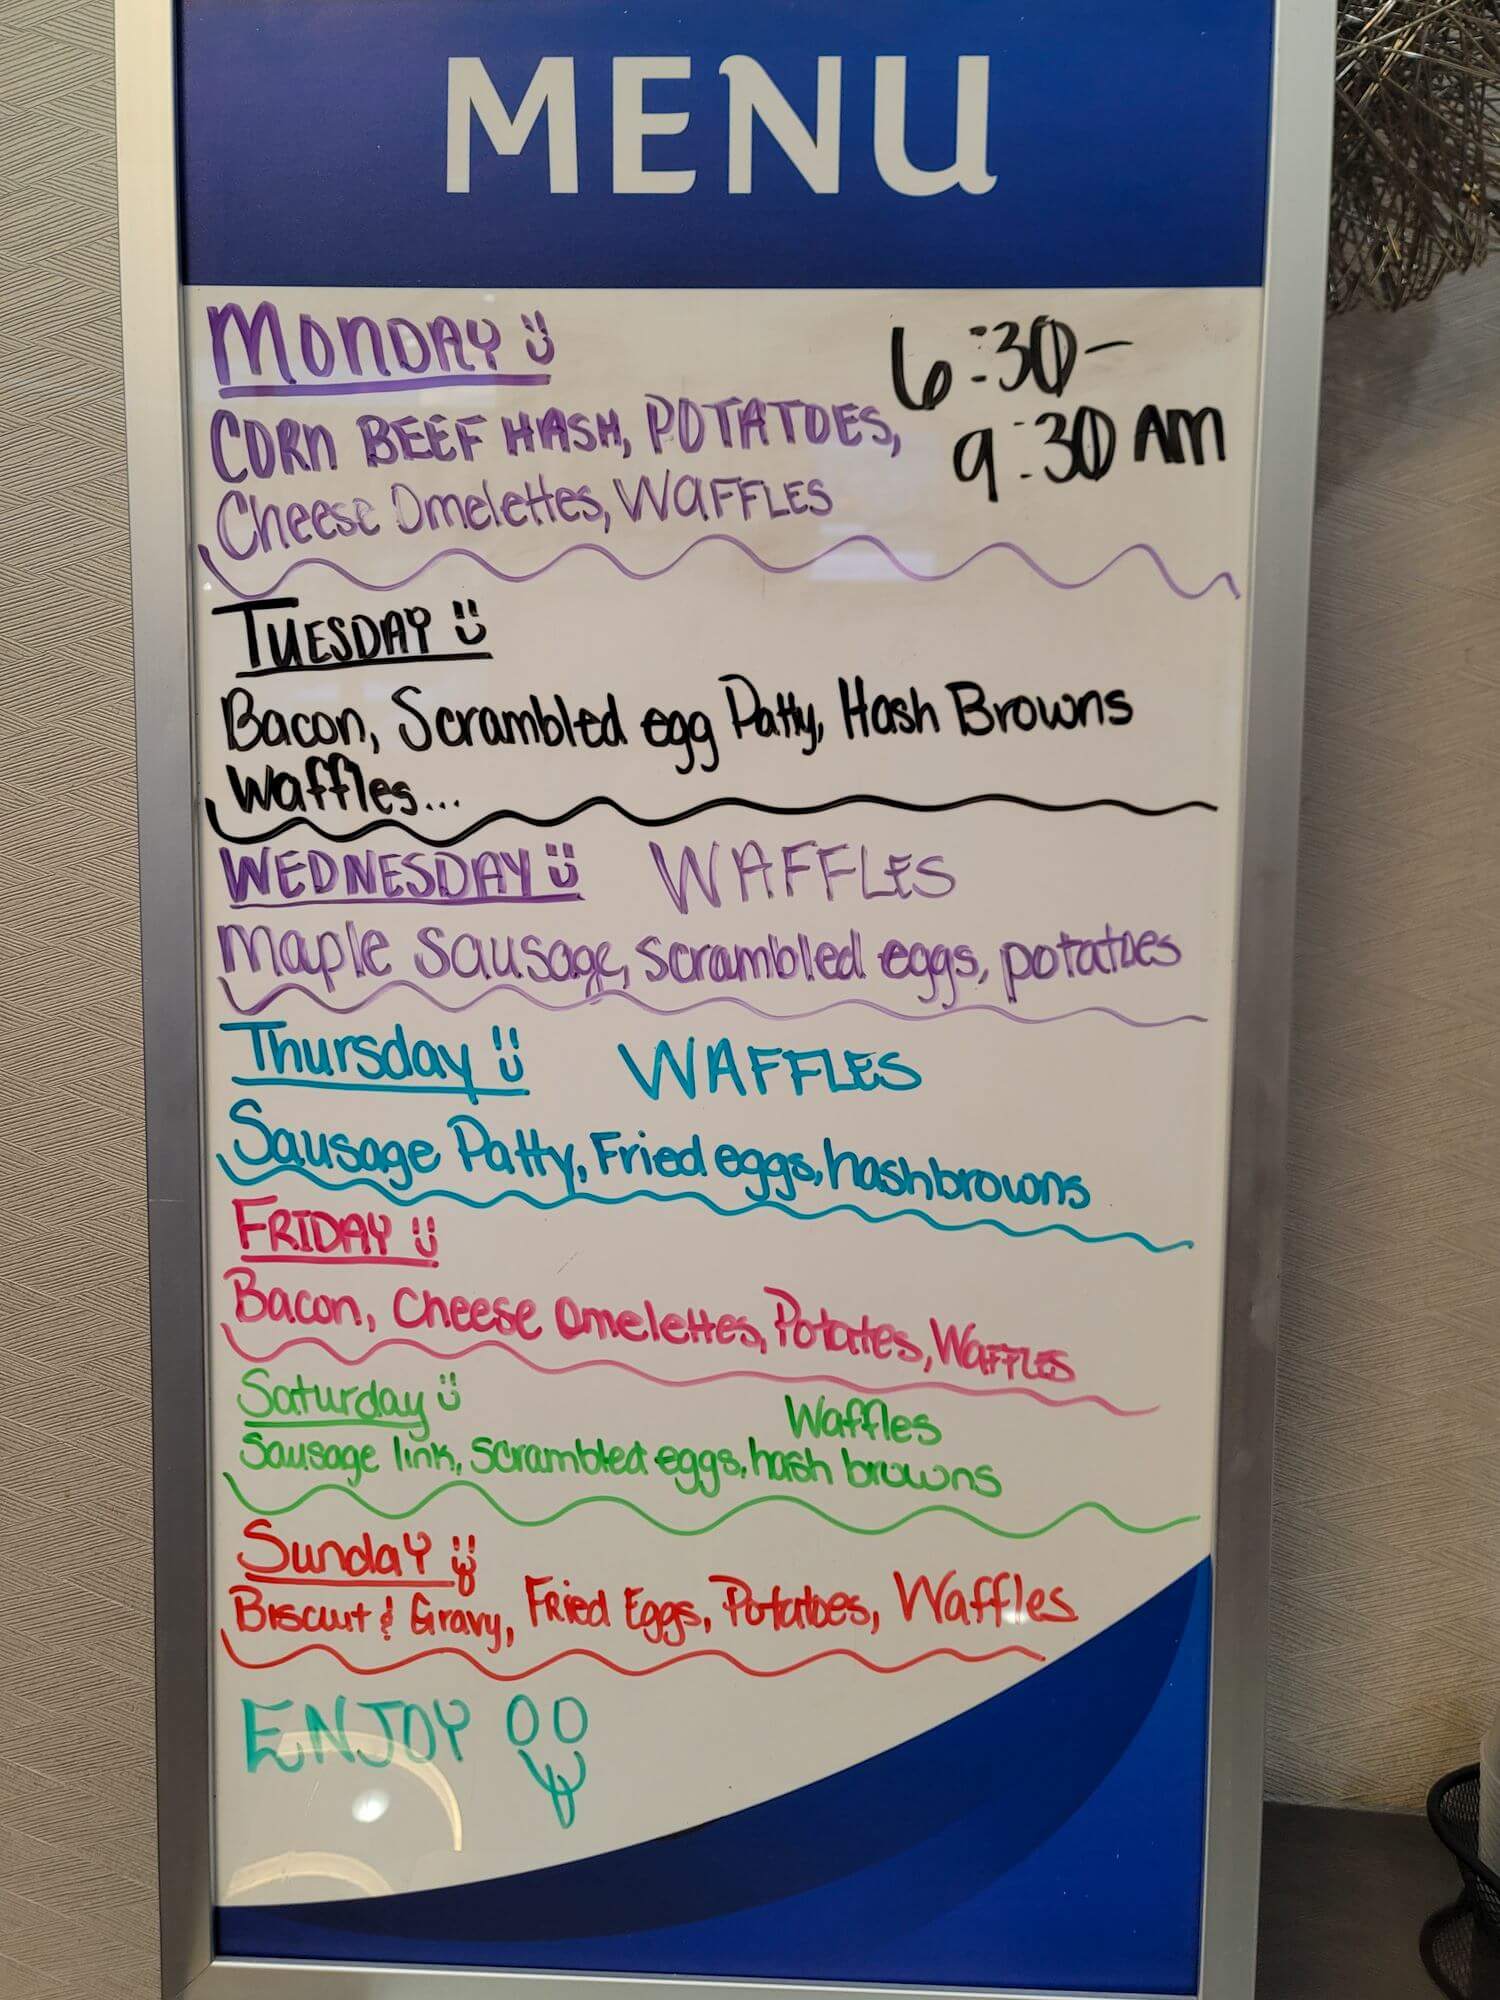 MENU
MONDAY
6:30-
9:30 AM
CORN BEEF HASH, POTATOES,
Cheese Omelettes, WAFFLES
TUESDAY
Bacon, Scrambled egg Patty, Hash Browns
Waffles...
WEDNESDAY WAFFLES
Maple Sausage, Scrambled eggs, potatoes
Thursday WAFFLES
Sausage Patty, Fried eggs, hashbrowns
FRIDAY
Bacon, Cheese Omelettes, Potates, WAFFLES
Saturday Waffles
Sausage link, Scrambled eggs, hash browns
Sunday
Biscuit & Gravy, Fried Eggs, Potatoes, Waffles
ENJOY